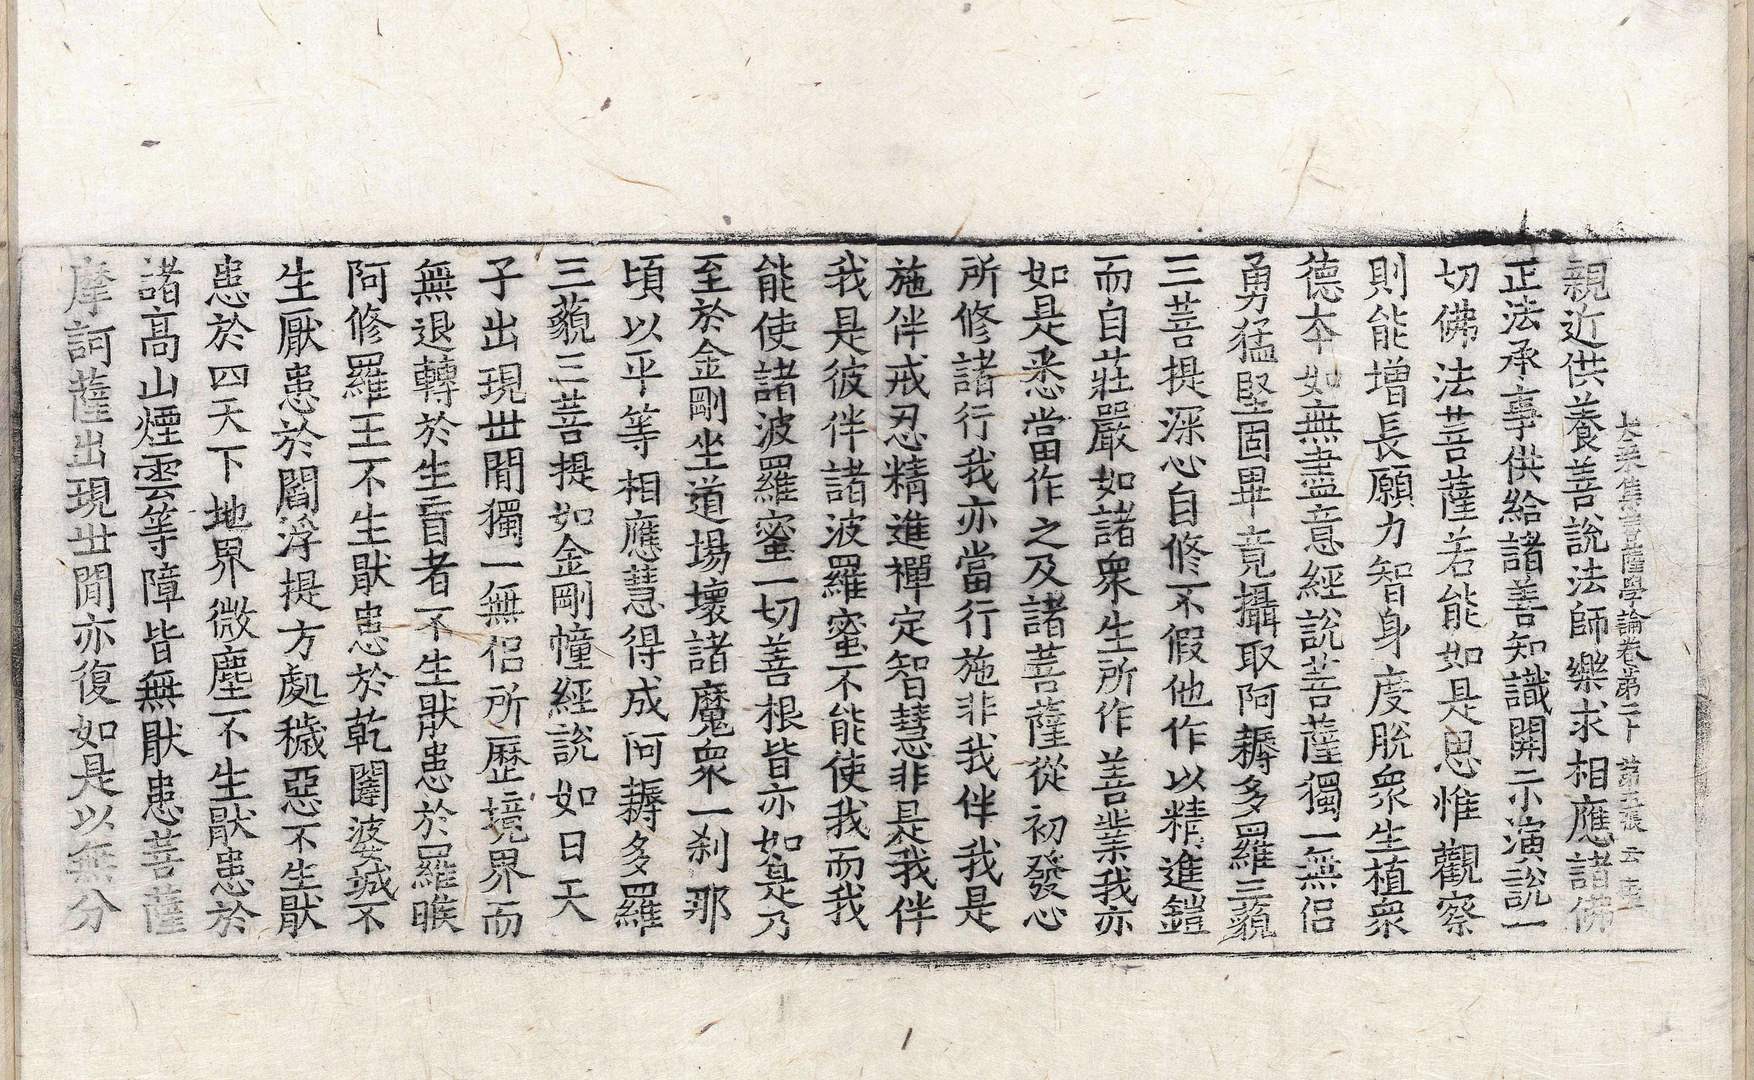 大乘集菩薩學論卷第二十 第五張 云
親近供養善說法師樂求相應諸佛
正法承事供給諸善知識開示演說一
切佛法菩薩若能如是思惟觀察
則能增長願力智身度脫衆生植衆
德夲如無盡意經說菩薩獨一無侶
勇猛堅固畢竟攝取阿耨多羅三藐
三菩提深心自修不假他作以精進鎧
而自莊嚴如諸衆生所作善業我亦
如是悉當作之及諸菩薩從初發心
所修諸行我亦當行施非我伴我是
施伴戒忍精進禪定智慧非是我伴
我是彼伴諸波羅蜜不能使我而我
能使諸波羅蜜一切善根皆亦如是乃
至於金剛坐道場壞諸魔衆一刹那
頃以平等相應慧得成阿耨多羅
三藐三菩提如金剛幢經說如日天
子出現世閒獨一無侶所歷境界而
無退轉於生盲者不生猒患於羅睺
阿修羅王不生猒患於乾闥婆城不
生猒患於閻浮提方處穢惡不生猒
患於四天下地界微塵不生猒患於
諸高山煙雲等障皆無猒患菩薩
摩訶薩出現世閒亦復如是以無分